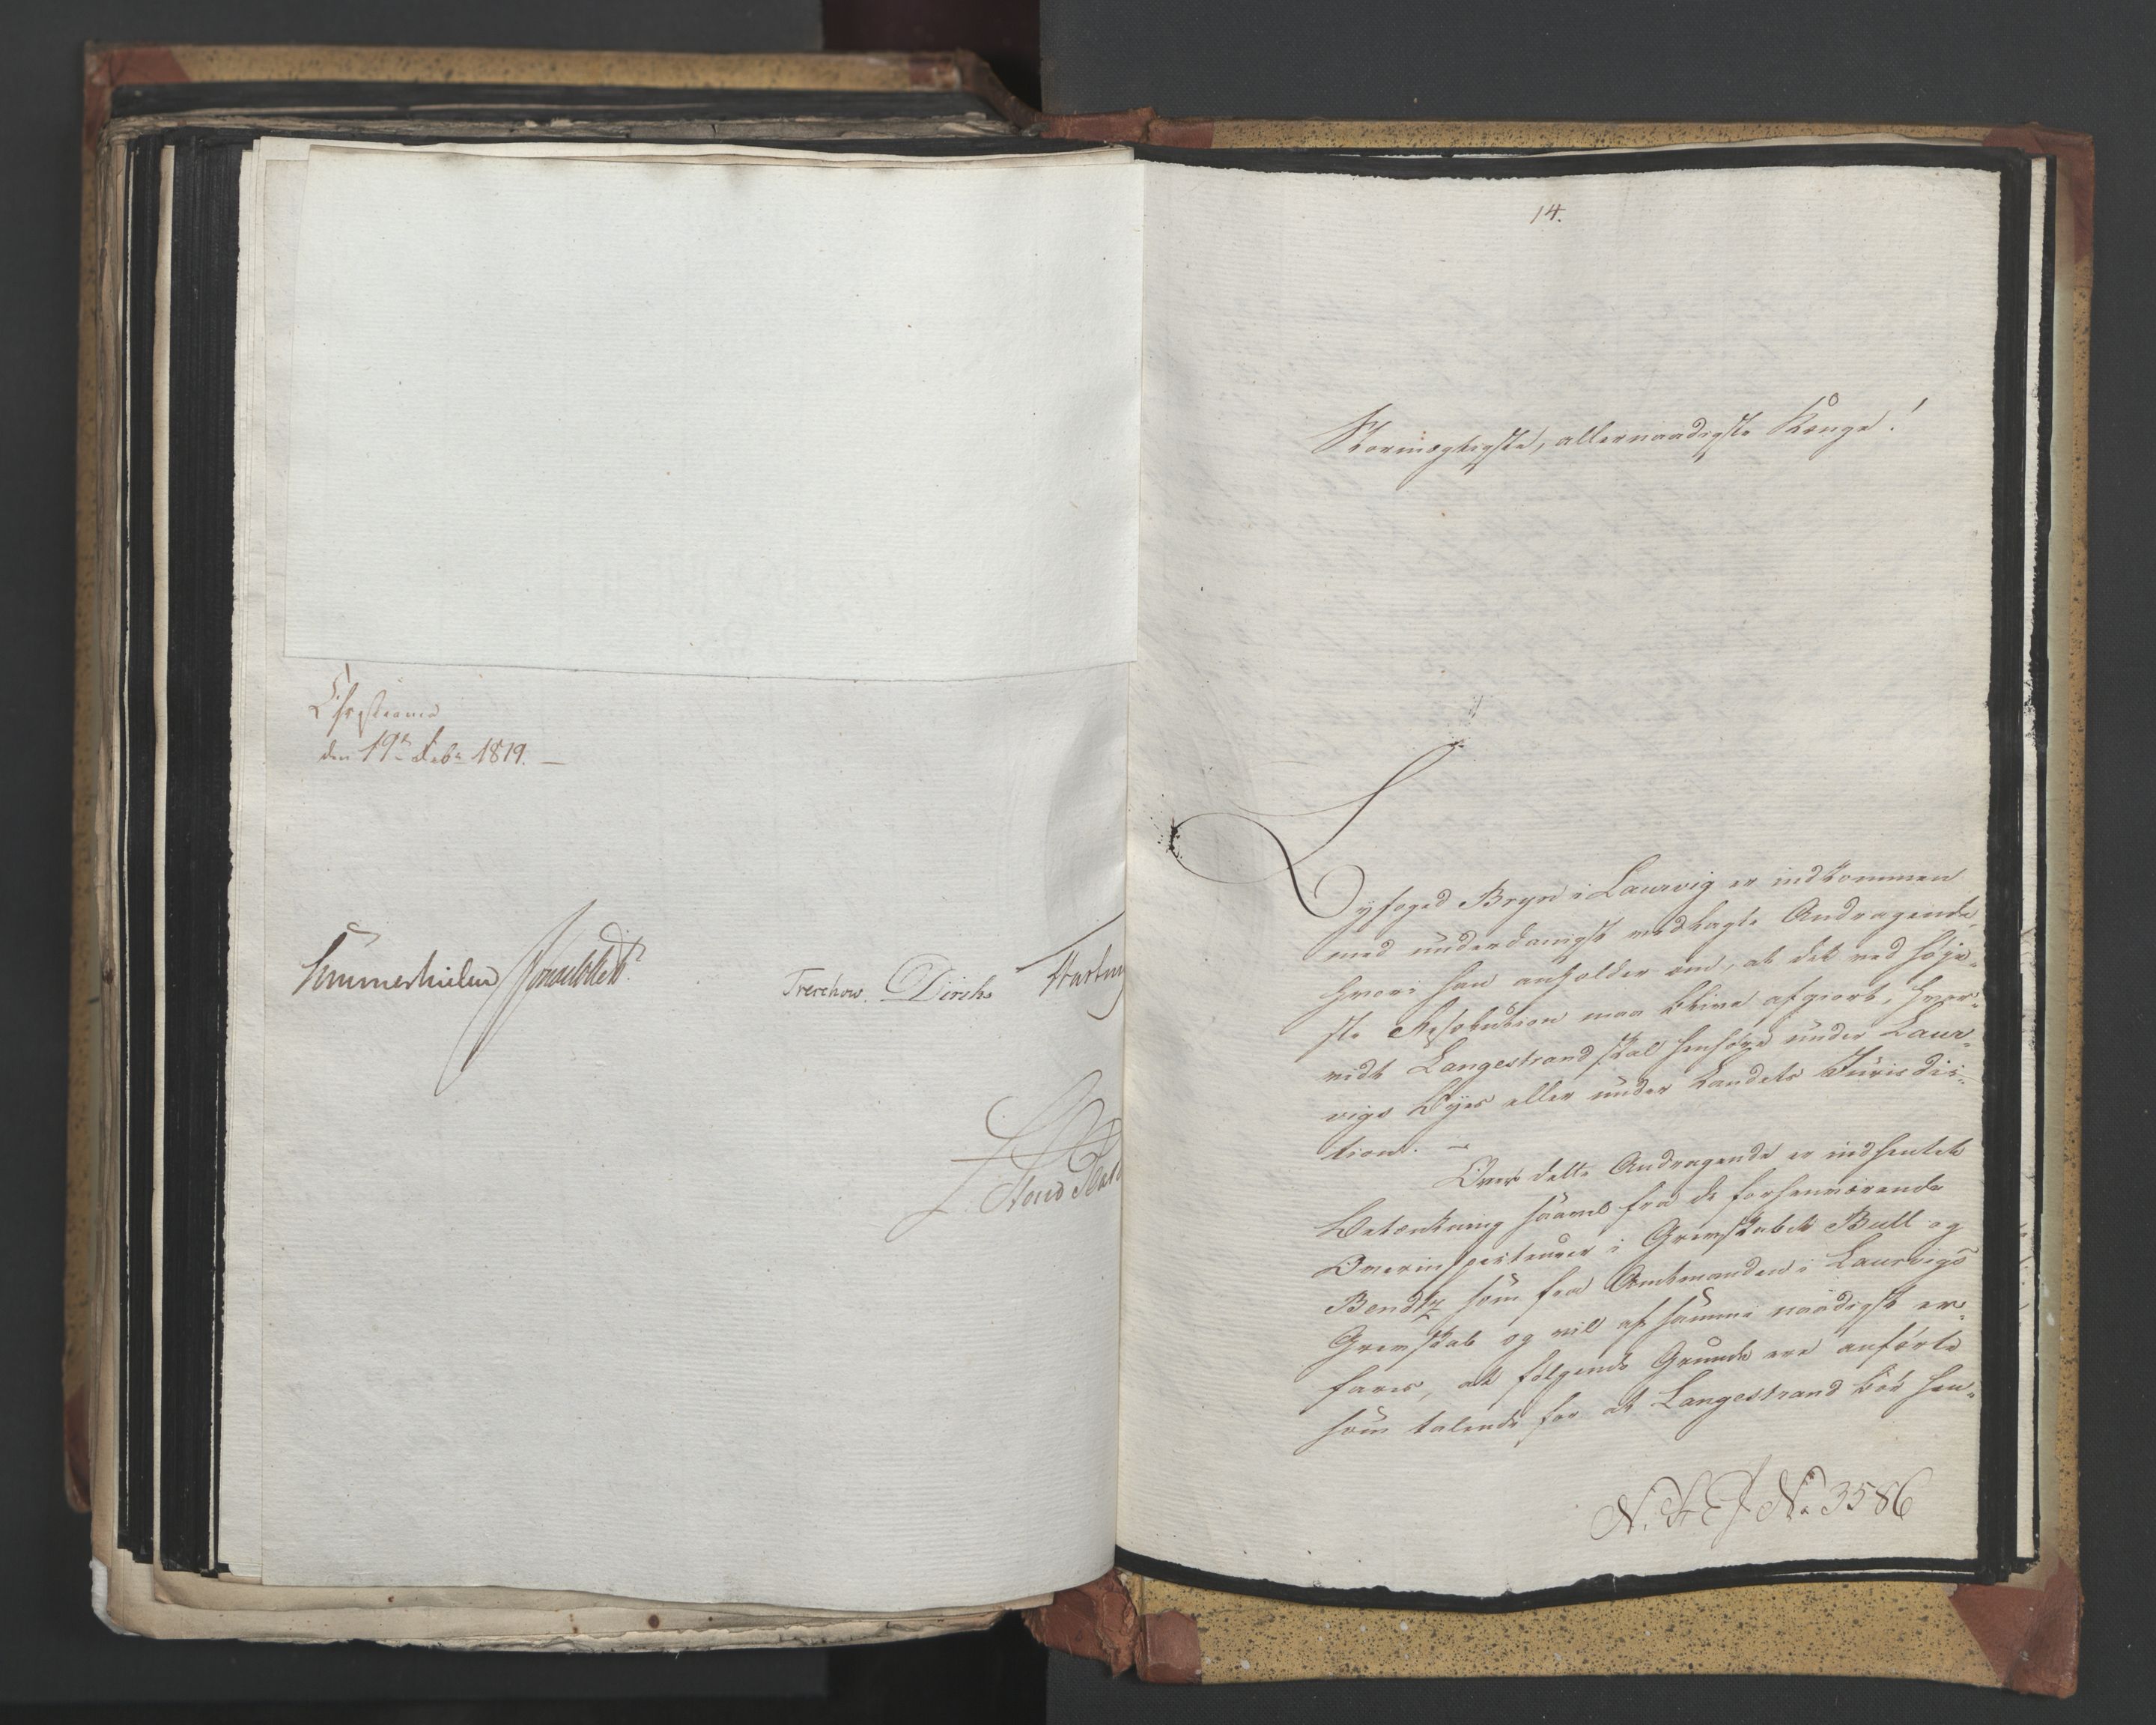 Christiania
den 19de Febr 1819.
Sommerhielm
Treschow. Diriks
14.
Stormægtigste, allernaadigste Konge!
Byfoged Bryn i Laurvig er indkommen
med underdanigst vedlagte Andragende,
hvori han anholder om, at det ved høje-
ste Resolution maa blive afgiort, hvor-
vidt Langestrand skal henhøre under Laur-
vigs Byes eller under Landets Jurisdic-
tion. –
Over dette Andragende er indhentet
Betænkning saavel fra de forhenværende
Overinspecteurer i Grevskabet Bull og
Bendtz som fra Amtmanden i Laurvigs
Grevskab og vil af samme naadigst er-
fares, at følgende Grunde ere anførte
som talende for at Langestrand bør hen-
No 3586